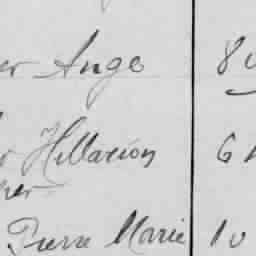 er Ange 8
Hillarion 6
er
Pierre Marie 10